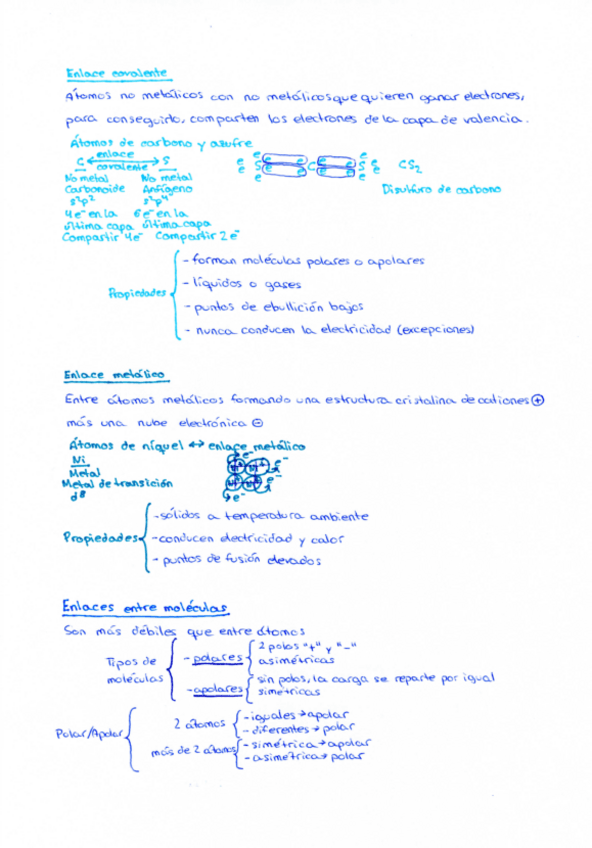 Enlace covalente
Átomos no metálicos con no metálicos que quieren ganar electrones,
para conseguirlo, comparten los electrones de la capa de valencia.
Átomos de carbono y azufre
enlace
C ↔ S
covalente
No metal No metal
Carbonoide Anfígeno
s²p² s²p⁴
4e⁻ en la 6e⁻ en la
última capa última capa
Compartir 4e⁻ Compartir 2e⁻
e e S e e C e S e e
CS₂
Disulfuro de carbono
Propiedades
- forman moléculas polares o apolares
- líquidos o gases
- puntos de ebullición bajos
- nunca conducen la electricidad (excepciones)
Enlace metálico
Entre átomos metálicos formando una estructura cristalina de cationes ⊕
más una nube electrónica ⊖
Átomos de níquel ↔ enlace metálico
Ni
Metal
Metal de transición
d⁸
e⁻ e⁻ e⁻ e⁻
Propiedades
- sólidos a temperatura ambiente
- conducen electricidad y calor
- puntos de fusión elevados
Enlaces entre moléculas
Son más débiles que entre átomos
Tipos de moléculas
- polares
2 polos "+" y "-"
asimétricas
- apolares
sin polos, la carga se reparte por igual
simétricas
Polar/Apolar
2 átomos
- iguales → apolar
- diferentes → polar
más de 2 átomos
- simétrica → apolar
- asimétrica → polar